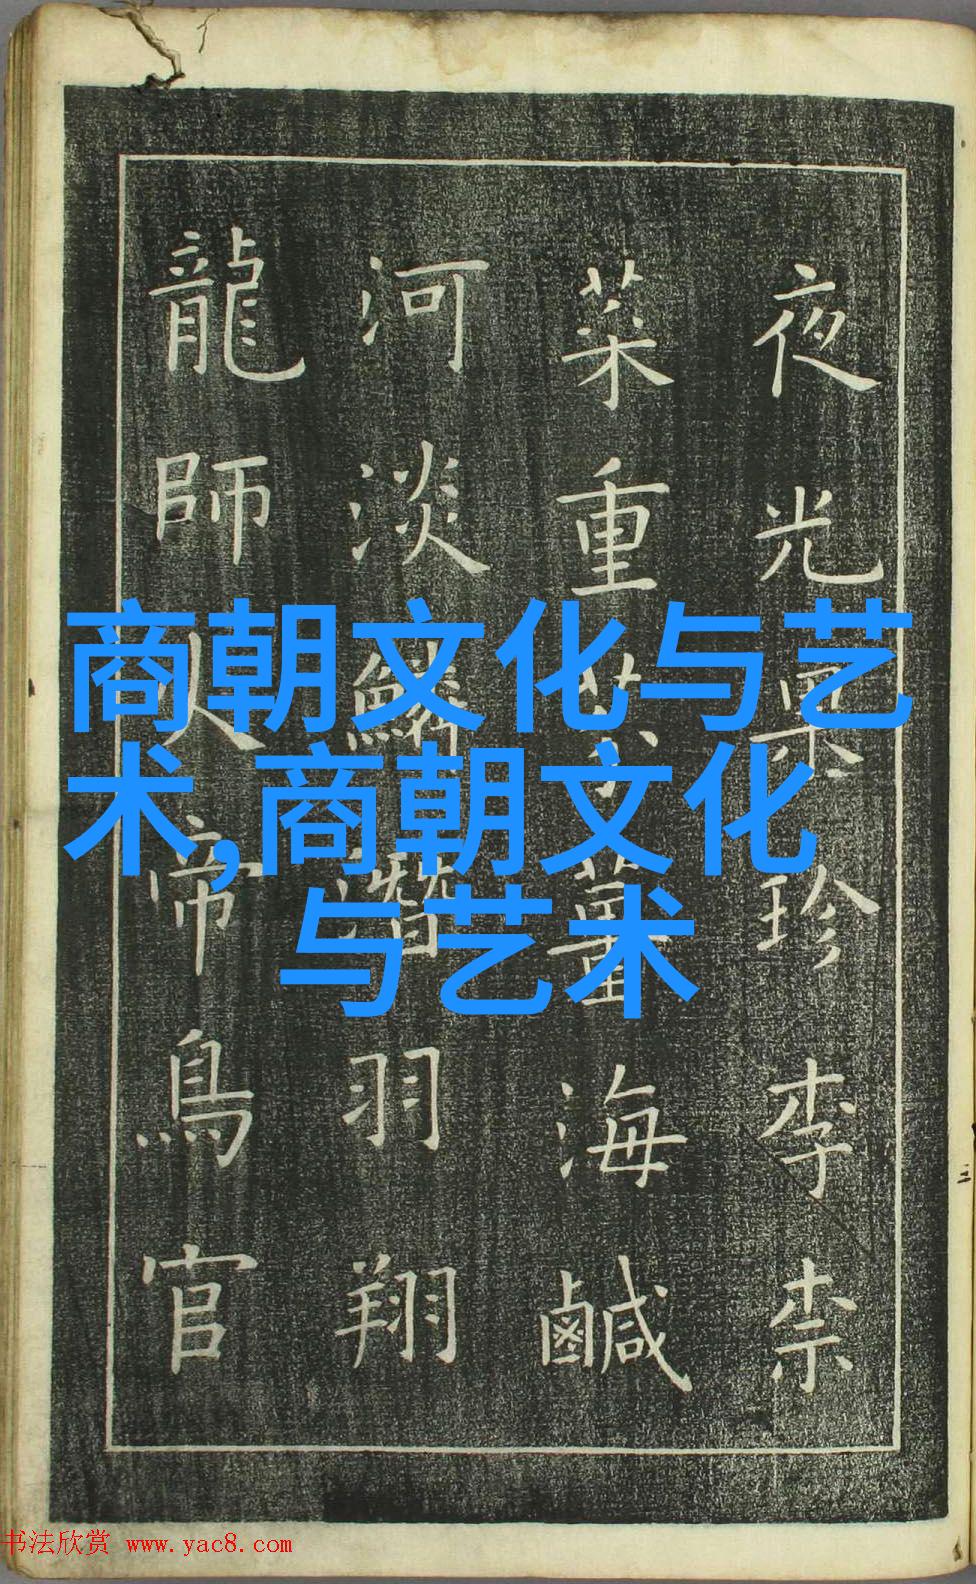 夜光果珍李柰
菜重芥薑海鹹
河淡鱗潛羽翔
龍師火帝鳥官
商朝文化与艺
术,商朝文化
与艺术
书法欣赏 www.yac8.com